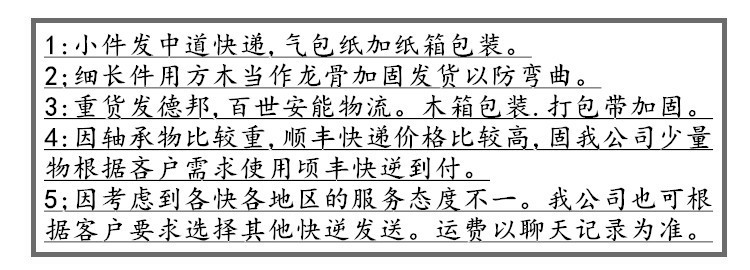 1:小件发中道快递,气包纸加纸箱包装。
2;细长件用方木当作龙骨加固发货以防弯曲。
3:重货发德邦,百世安能物流。木箱包装.打包带加固。
4:因轴承物比较重,顺丰快递价格比较高,固我公司少量
物根据客户需求使用顷丰快逆到付。
5;因考虑到各快各地区的服务态度不一。我公司也可根
据客户要求选择其他快逆发送。运费以聊天记录为准。